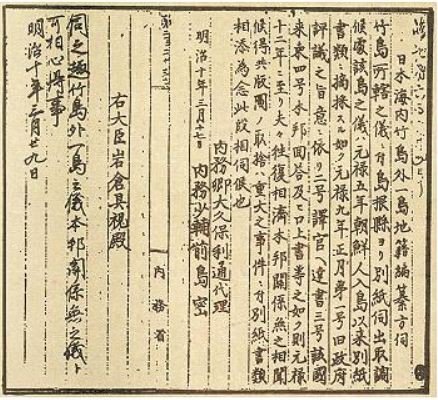 日本海内竹島外一島地籍編纂方伺
竹島所轄之儀ニ付島根縣ヨリ別紙伺出取調
候處該島之儀ハ元禄五年朝鮮人入島以来別紙
書類ニ摘採スル如ク元禄九年正月第一号旧政府
評議之旨意ニ依リ二号譯官ヘ達書三号該國
来柬四号本邦回答及ヒ口上書等之如ク則元禄
十二年ニ至リ夫々往復相濟本邦關係無之相聞
候得共版圖ノ取捨ハ重大之事件ニ付別紙書類
相添為念此段相伺候也
内務卿大久保利通代理
明治十年三月十七日 内務少輔前島密
内務省
右大臣岩倉具視殿
伺之趣竹島外一島之儀本邦関係無之儀ト
可相心得事
明治十年三月廿九日